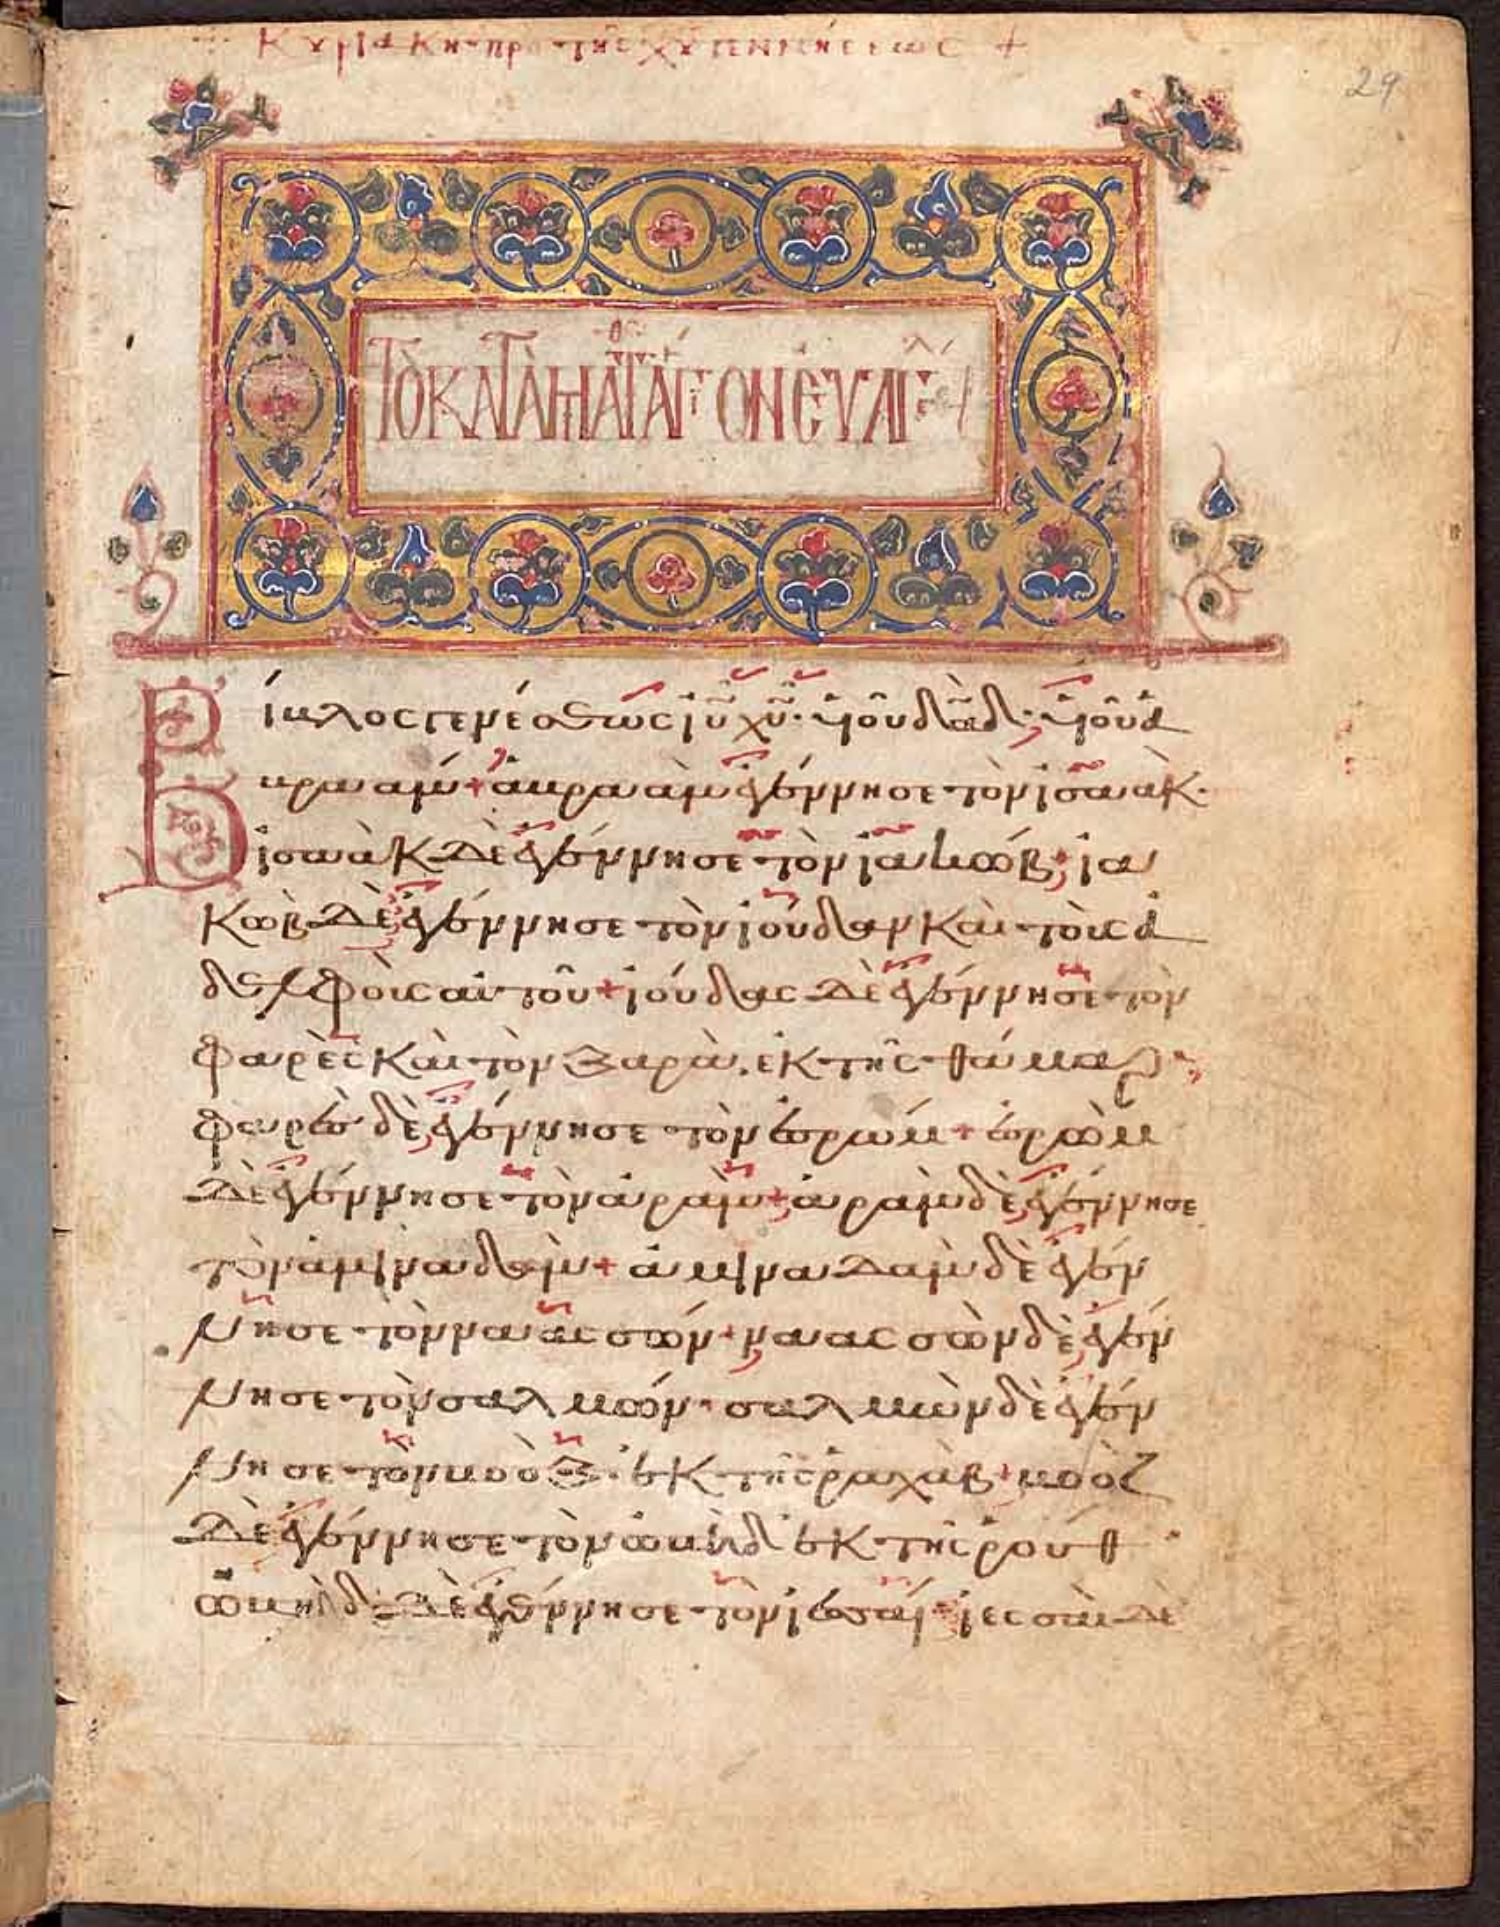 Κυριακη προ της χυ γεννησεως +
29
ΤΟ ΚΑΤΑ ΜΑΤΘ ΑΓΙΟΝ ΕΥΑΓΓΕΛ
Βίβλος γενέσεως ἰῦ χῦ· υἱοῦ δᾱδ· υἱοῦ ἀ
βραάμ + ἀβραὰμ ἐγέννησε τὸν ἰσαὰκ·
ἰσαὰκ δὲ ἐγέννησε τὸν ἰακώβ· ἰα
κὼβ δὲ ἐγέννησε τὸν ἰούδαν καὶ τοὺς ἀ
δελφοὺς αὐτοῦ + ἰούδας δὲ ἐγέννησε τὸν
φαρὲς καὶ τὸν ζαρὰ. ἐκ τῆς θάμαρ·
φαρὲς δὲ ἐγέννησε τὸν ἐσρώμ + ἐσρὼμ
δὲ ἐγέννησε τὸν ἀράμ + ἀρὰμ δὲ ἐγέννησε
τὸν ἀμιναδάμ + ἀμιναδὰμ δὲ ἐγέν
νησε τὸν ναασσών + ναασσὼν δὲ ἐγέν
νησε τὸν σαλμών· σαλμὼν δὲ ἐγέν
νησε τὸν βοὸζ· ἐκ τῆς ῥαχάβ + βοὸζ
δὲ ἐγέννησε τὸν ὠβὴδ ἐκ τῆς ῥούθ
ὠβὴδ δὲ ἐγέννησε τὸν ἰεσσαί· ἰεσσαὶ δὲ